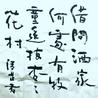 借問酒家
何處有牧
童遥指杏
花村